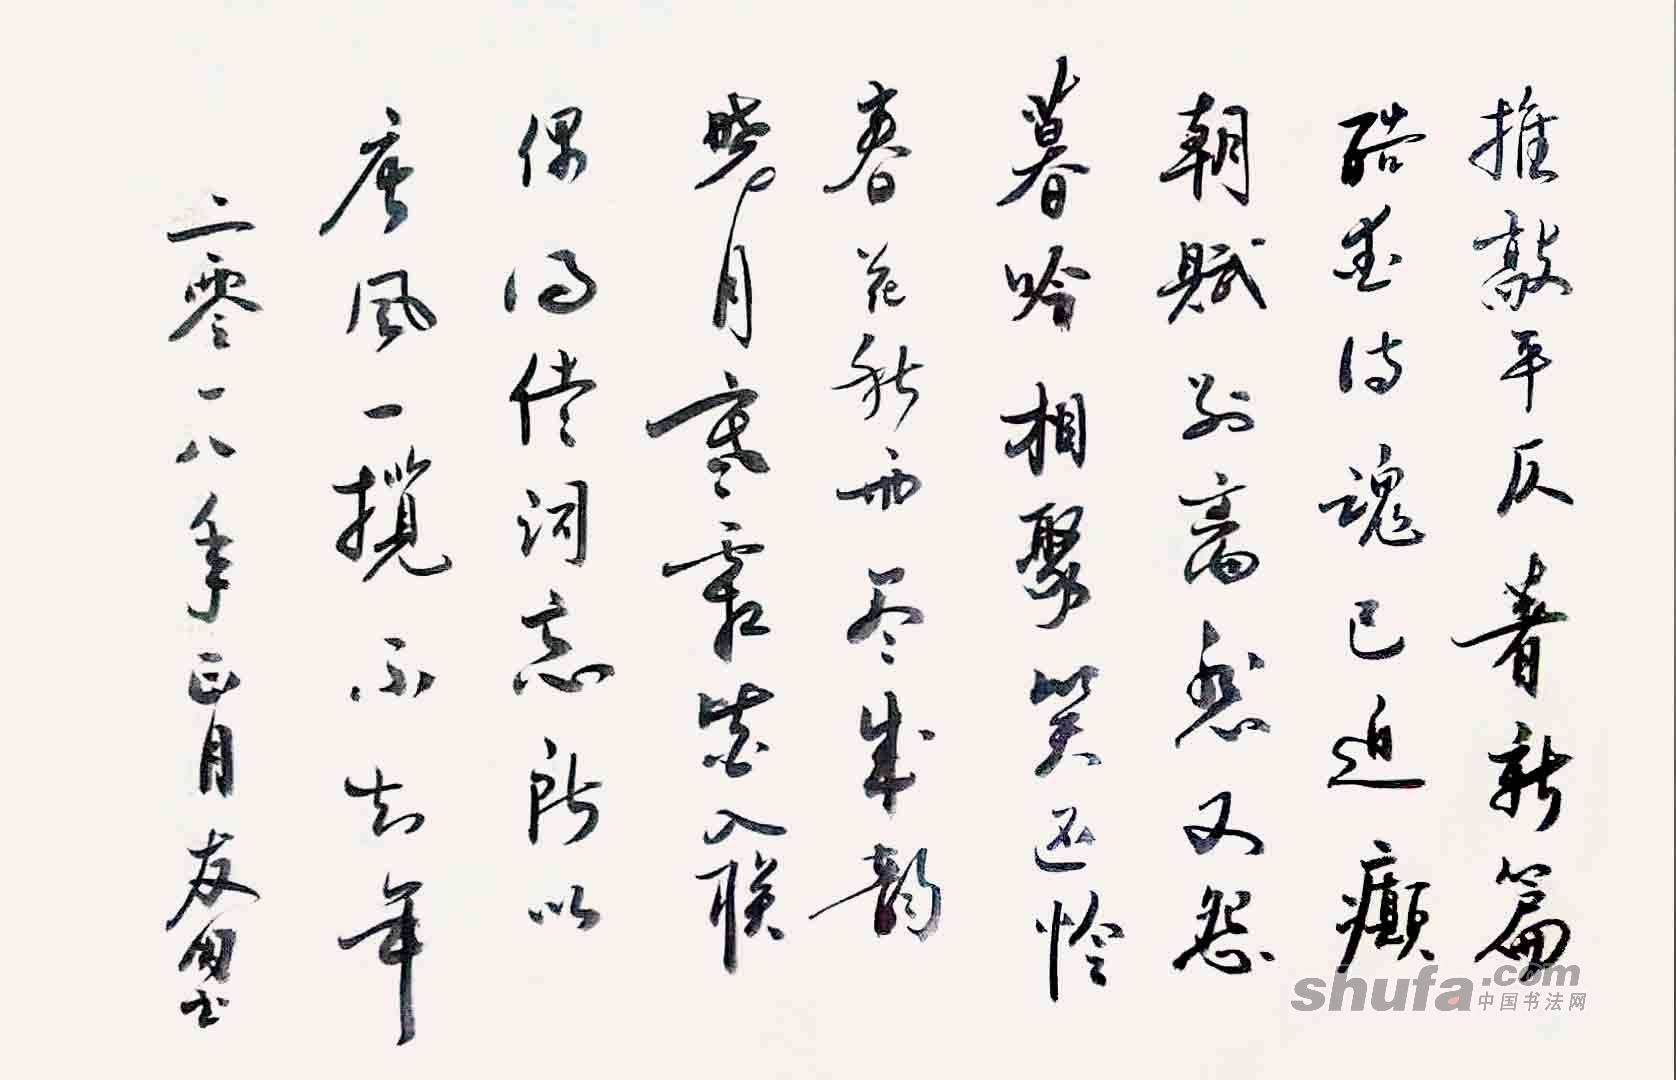 推敲平仄著新篇
酷爱诗魂已迫癫
朝赋别离愁又怨
暮吟相聚笑还怜
春花秋雨尽成韵
晓月寒霞皆入联
偶得佳词忘所以
唐风一揽不知年
二零一八年正月友国书
shufa.com
中国书法网